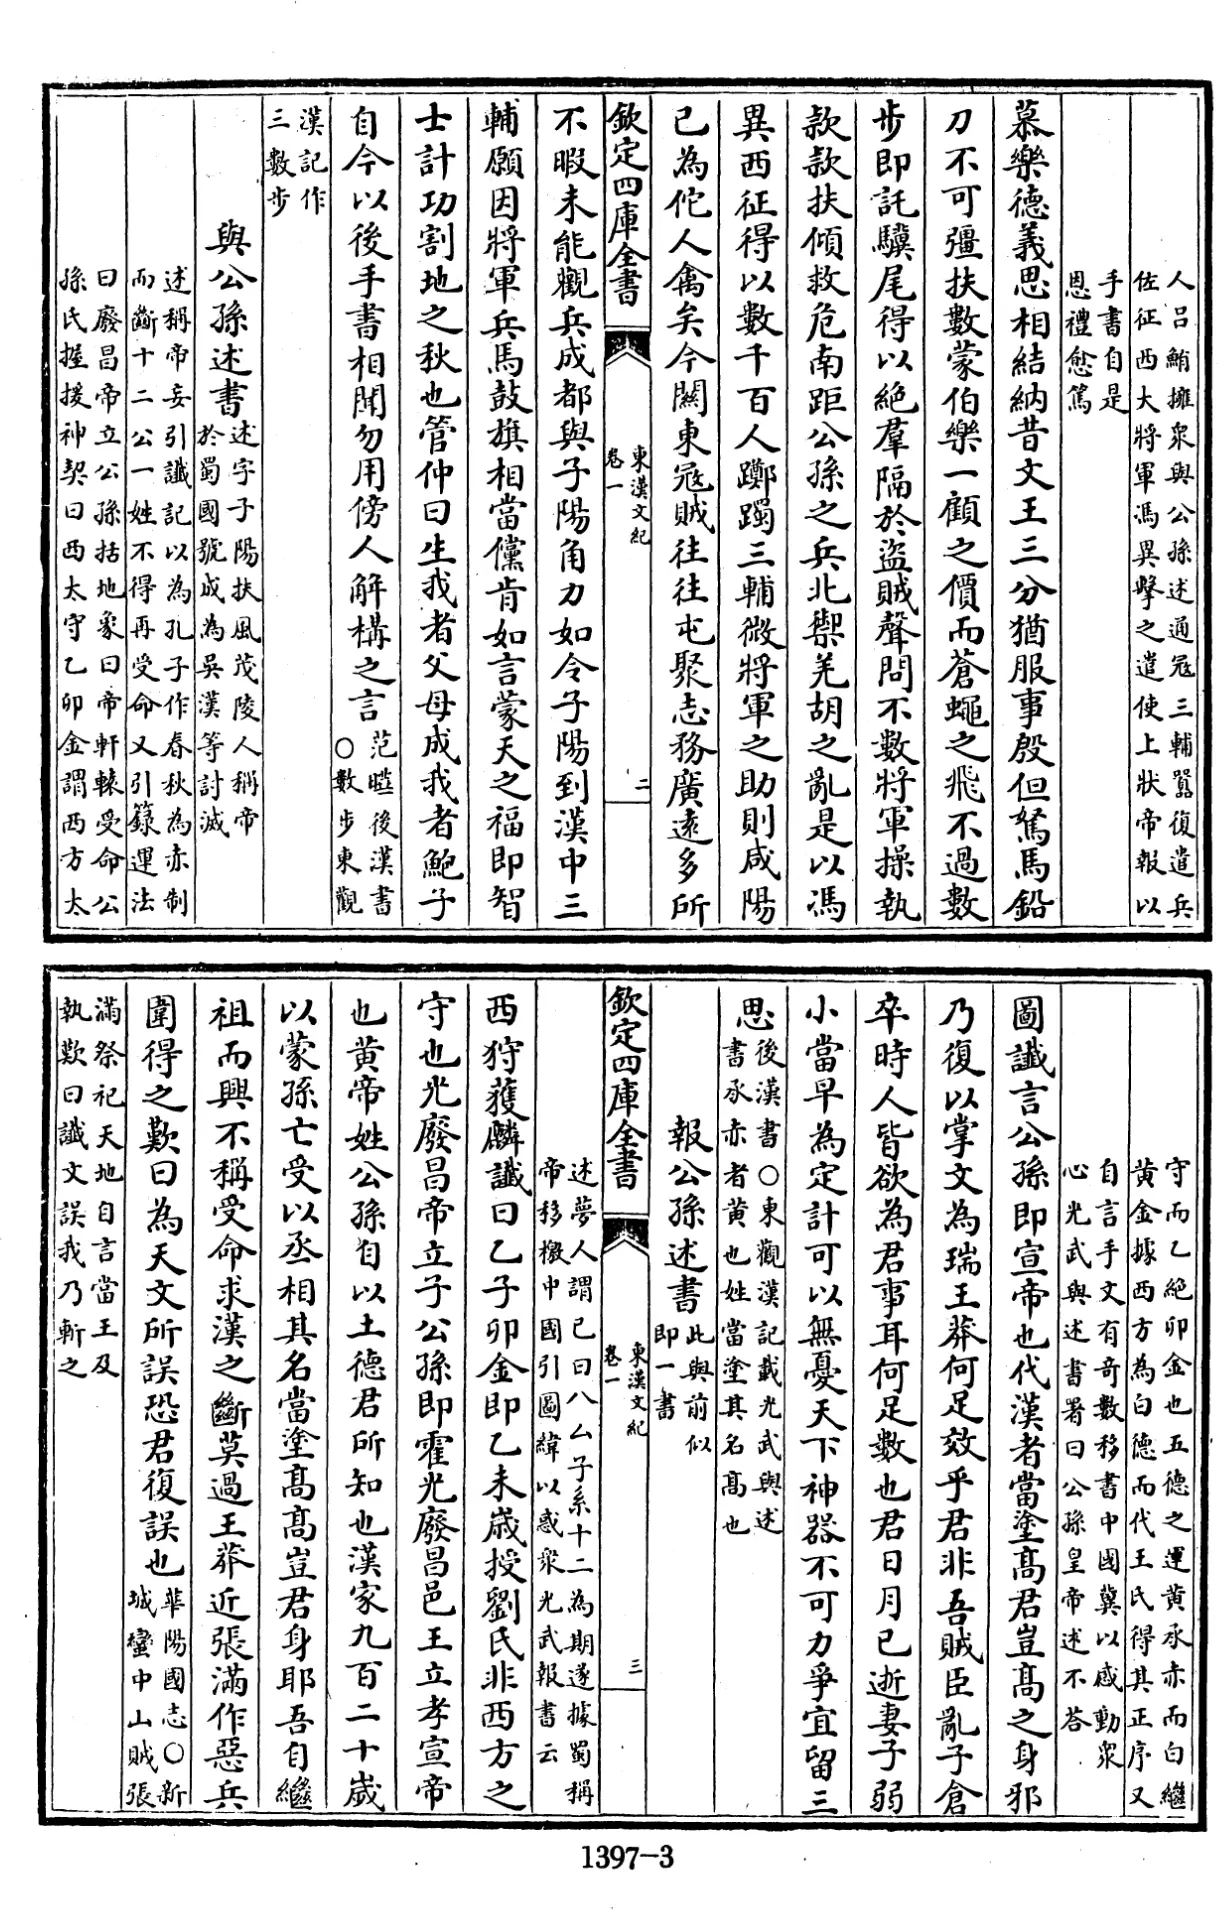 人呂鮪擁衆與公孫述通冦三輔囂復遣兵
佐征西大將軍馮異擊之遣使上狀帝報以
手書自是
恩禮愈篤
慕樂德義思相結納昔文王三分猶服事殷但駑馬鉛
刀不可彊扶數蒙伯樂一顧之價而蒼蠅之飛不過數
步即託驥尾得以絶羣隔於盜賊聲問不數將軍操執
款款扶傾救危南距公孫之兵北禦羌胡之亂是以馮
異西征得以數千百人躑躅三輔微將軍之助則咸陽
已為佗人禽矣今關東冦賊往往屯聚志務廣遠多所
欽定四庫全書
東漢文紀
卷一
二
不暇未能觀兵成都與子陽角力如令子陽到漢中三
輔願因將軍兵馬鼓旗相當儻肯如言蒙天之福即智
士計功割地之秋也管仲曰生我者父母成我者鮑子
自今以後手書相聞勿用傍人解構之言
范曄後漢書
○數步東觀
漢記作
三數步
與公孫述書
述字子陽扶風茂陵人稱帝
於蜀國號成為吳漢等討滅
述稱帝妄引讖記以為孔子作春秋為赤制
而斷十二公一姓不得再受命又引籙運法
曰廢昌帝立公孫括地象曰帝軒轅受命公
孫氏握援神契曰西太守乙卯金謂西方太
守而乙絶卯金也五德之運黄承赤而白繼
黄金據西方為白德而代王氏得其正序又
自言手文有奇數移書中國冀以感動衆
心光武與述書署曰公孫皇帝述不荅
圖讖言公孫即宣帝也代漢者當塗髙君豈髙之身邪
乃復以掌文為瑞王莽何足效乎君非吾賊臣亂子倉
卒時人皆欲為君事耳何足數也君日月已逝妻子弱
小當早為定計可以無憂天下神器不可力爭宜留三
思
後漢書○東觀漢記載光武與述
書承赤者黄也姓當塗其名髙也
報公孫述書
此與前似
即一書
欽定四庫全書
東漢文紀
卷一
三
述夢人謂已曰八厶子系十二為期遂據蜀稱
帝移檄中國引圖緯以惑衆光武報書云
西狩獲麟讖曰乙子卯金即乙未歲授劉氏非西方之
守也光廢昌帝立子公孫即霍光廢昌邑王立孝宣帝
也黄帝姓公孫自以土德君所知也漢家九百二十歲
以蒙孫亡受以丞相其名當塗髙髙豈君身耶吾自繼
祖而興不稱受命求漢之斷莫過王莽近張滿作惡兵
圍得之歎曰為天文所誤恐君復誤也
華陽國志○新
城蠻中山賊張
滿祭祀天地自言當王及
執歎曰讖文誤我乃斬之
1397-3